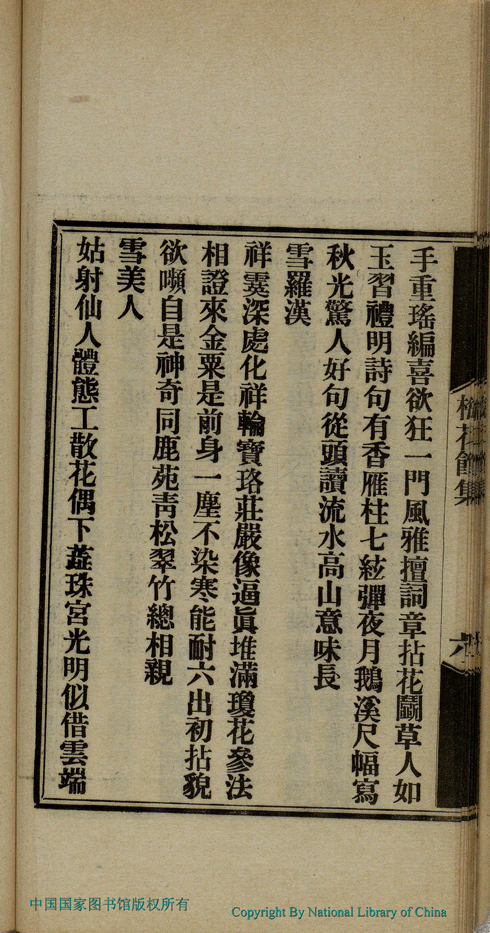 手重瑤編喜欲狂一門風雅擅詞章拈花鬬草人如
玉習禮明詩句有香雁柱七絃彈夜月鵝溪尺幅寫
秋光驚人好句從頭讀流水高山意味長
雪羅漢
祥霙深處化祥輪寶珞莊嚴像逼眞堆滿瓊花參法
相證來金粟是前身一塵不染寒能耐六出初拈貌
欲嚬自是神奇同鹿苑靑松翠竹總相親
雪美人
姑射仙人體態工散花偶下蕋珠宮光明似借雲端
中国国家图书馆版权所有
Copyright By National Library of China